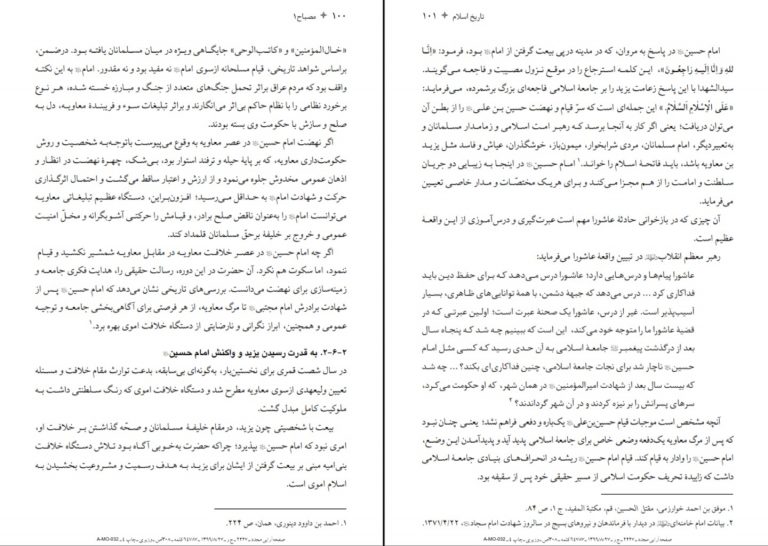 ۱۰۰ ✦ مصباح ۱
«خـال‌المؤمنین» و «کاتـب‌الوحی» جایگاهی ویـژه در میـان مسـلمانان یافتـه بـود. درضمـن،
براساس شواهد تاریخی، قیام مسلحانه ازسوی امام نه مفید بود و نه مقدور. امام به این نکته
واقف بود که مردم عراق براثر تحمل جنگ‌های متعدد از جنگ و مبارزه خسته شده، هر نوع
برخورد نظامی را با نظام حاکم بی‌اثر می‌انگارند و براثر تبلیغات سوء و فریبندهٔ معاویه، دل به
صلح و سازش با حکومت وی بسته بودند.
اگر نهضت امام حسین در عصر معاویه به وقوع می‌پیوست باتوجه‌به شخصیت و روش
حکومت‌داری معاویه، که بر پایهٔ حیله و ترفند استوار بود، بی‌شک، چهرهٔ نهضت در انظار و
اذهان عمومی مخدوش جلوه می‌نمود و از ارزش و اعتبار ساقط می‌گشت و احتمال اثرگذاری
حرکت و شهادت امام به حداقل می‌رسید؛ افزون‌براین، دستگاه عظیم تبلیغاتی معاویه
می‌توانست امام را به‌عنوان ناقض صلح برادر، و قیامش را حرکتی آشوبگرانه و مخلّ امنیت
عمومی و خروج بر خلیفهٔ برحقّ مسلمانان قلمداد کند.
اگر چه امام حسین در عصر خلافت معاویه در مقابل معاویه شمشیر نکشید و قیام
ننمود، اما سکوت هم نکرد. آن حضرت در این دوره، رسالت حقیقی را، هدایت فکری جامعه و
زمینه‌سازی برای نهضت می‌دانست. بررسی‌های تاریخی نشان می‌دهد که امام حسین پس از
شهادت برادرش امام مجتبی تا مرگ معاویه، از هر فرصتی برای آگاهی‌بخشی جامعه و توجیه
عمومی و همچنین، ابراز نگرانی و نارضایتی از دستگاه خلافت اموی بهره برد.۱
۲-۶-۲. به قدرت رسیدن یزید و واکنش امام حسین
در سال شصت قمری برای نخستین‌بار، به‌گونه‌ای بی‌سابقه، بدعت توارث مقام خلافت و مسئله
تعیین ولیعهدی ازسوی معاویه مطرح شد و دستگاه خلافت اموی که رنگ سلطنتی داشت به
ملوکیت کامل مبدل گشت.
بیعت با شخصیتی چون یزید، درمقام خلیفهٔ مسلمانان و صحّه گذاشتن بر خلافت او،
امری نبود که امام حسین بپذیرد؛ چراکه حضرت به‌خوبی آگاه بود تلاش دستگاه خلافت
بنی‌امیه مبنی بر بیعت گرفتن از ایشان برای یزید به هدف رسمیت و مشروعیت بخشیدن به
اسلام اموی است.
۱. احمد بن داوود دینوری، همان، ص ۲۲۴.
تاریخ اسلام ✦ ۱۰۱
امام حسین در پاسخ به مروان، که در مدینه درپی بیعت گرفتن از امام بود، فرمود: «إنَّا
للهِ وَ إنَّا إلَیهِ رَاجِعُونَ»، این کلمه استرجاع را در موقع نزول مصیبت و فاجعه می‌گویند.
سیدالشهدا با این پاسخ زعامت یزید را بر جامعهٔ اسلامی فاجعه‌ای بزرگ برشمرده، می‌فرماید:
«عَلَی الْإسْلامِ السَّلَامُ.» این جمله‌ای است که سرّ قیام و نهضت حسین بن علی را از بطن آن
می‌توان دریافت؛ یعنی اگر کار به آنجا برسد که رهبر امت اسلامی و زمامدار مسلمانان و
به‌تعبیردیگر، امام مسلمانان، مردی شرابخوار، میمون‌باز، خوشگذران، عیاش و فاسد مثل یزید
بن معاویه باشد، باید فاتحهٔ اسلام را خواند.۱ امام حسین در اینجا به زیبایی دو جریان
سلطنت و امامت را از هم مجزا می‌کند و برای هریک مختصّات و مدار خاصی تعیین
می‌فرماید.
آن چیزی که در بازخوانی حادثهٔ عاشورا مهم است عبرت‌گیری و درس‌آموزی از این واقعهٔ
عظیم است.
رهبر معظم انقلاب در تبیین واقعهٔ عاشورا می‌فرماید:
عاشورا پیام‌ها و درس‌هایی دارد؛ عاشورا درس می‌دهد که برای حفظ دین باید
فداکاری کرد ... درس می‌دهد که جبههٔ دشمن، با همهٔ توانایی‌های ظاهری، بسیار
آسیب‌پذیر است. غیر از درس، عاشورا یک صحنهٔ عبرت است؛ اولین عبرتی که در
قضیهٔ عاشورا ما را متوجه خود می‌کند، این است که ببینیم چه شد که پنجاه سال
بعد از درگذشت پیغمبر جامعهٔ اسلامی به آن حدی رسید که کسی مثل امام
حسین ناچار شد برای نجات جامعهٔ اسلامی، چنین فداکاری‌ای بکند؟ ... چه شد
که بیست سال بعد از شهادت امیرالمؤمنین در همان شهر، که او حکومت می‌کرد،
سرهای پسرانش را بر نیزه کردند و در آن شهر گرداندند؟۲
آنچه مشخص است موجبات قیام حسین‌بن‌علی یک‌باره و دفعی فراهم نشد؛ یعنی چنان نبود
که پس از مرگ معاویه یک‌دفعه وضعی خاص برای جامعهٔ اسلامی پدید آید و پدیدآمدن این وضع،
امام حسین را وادار به قیام کند. قیام امام حسین ریشه در انحراف‌های بنیادی جامعهٔ اسلامی
داشت که زاییدهٔ تحریف حکومت اسلامی از مسیر حقیقی خود پس از سقیفه بود.
۱. موفق بن احمد خوارزمی، مقتل الحسین، قم، مکتبة المفید، ج ۱، ص ۸۴.
۲. بیانات امام خامنه‌ای، در دیدار با فرماندهان و نیروهای بسیج در سالروز شهادت امام سجاد، ۱۳۷۱/۴/۲۲.